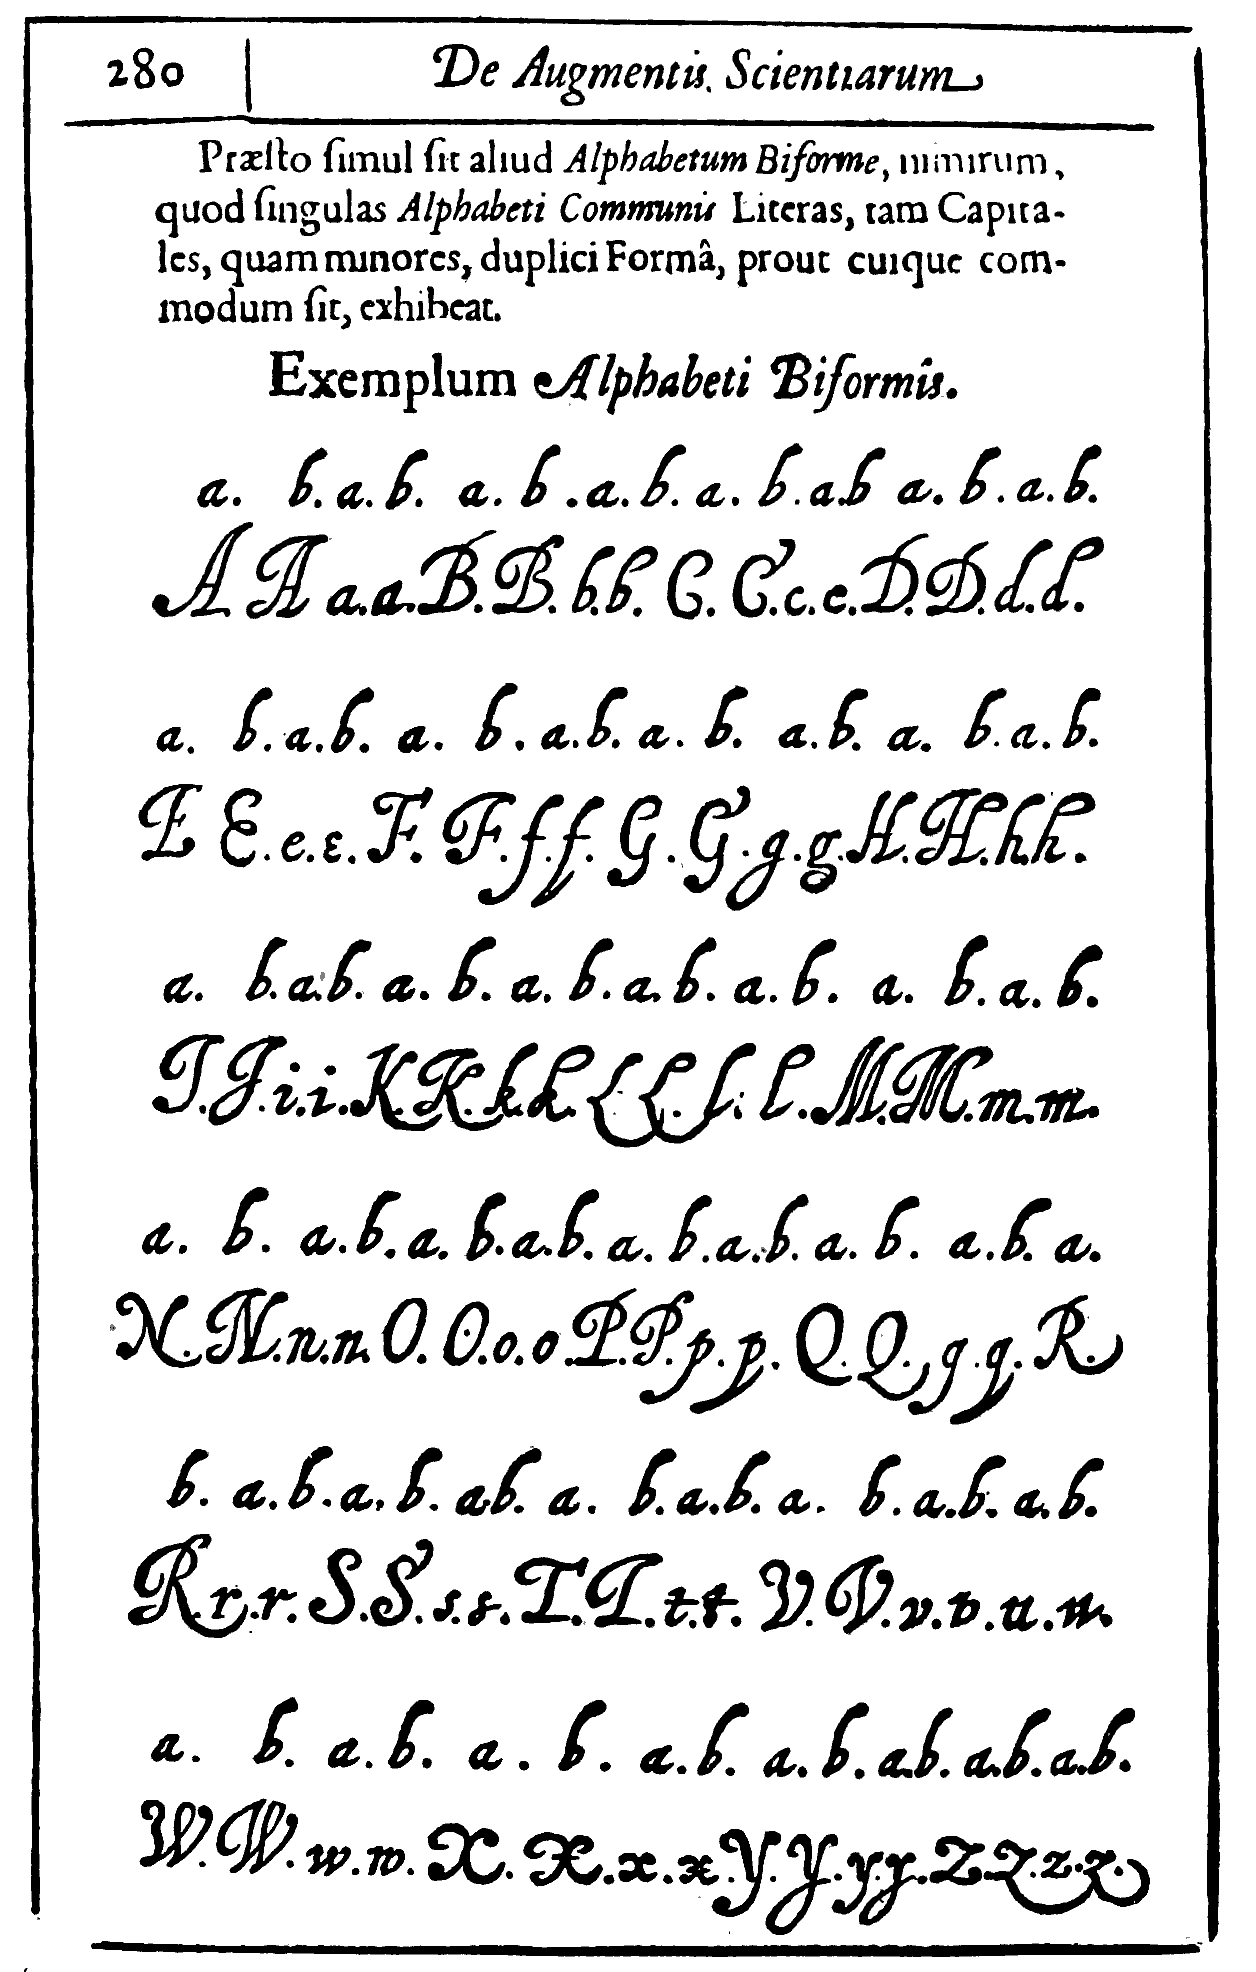 280 De Augmentis. Scientiarum
Præsto simul sit aliud Alphabetum Biforme, nimirum,
quod singulas Alphabeti Communis Literas, tam Capita-
les, quam minores, duplici Formâ, prout cuique com-
modum sit, exhibeat.
Exemplum Alphabeti Biformis.
a. b. a. b. a. b. a. b. a. b. a. b a. b. a. b.
A A a. a. B. B. b. b. C. C. c. c. D. D. d. d.
a. b. a. b. a. b. a. b. a. b. a. b. a. b. a. b.
E E. e. e. F. F. f. f. G. G. g. g. H. H. h. h.
a. b. a. b. a. b. a. b. a. b. a. b. a. b. a. b.
I. I. i. i. K. K. k. k. L L. l. l. M. M. m. m.
a. b. a. b. a. b. a. b. a. b. a. b. a. b. a. b. a.
N. N. n. n. O. O. o. o. P. P. p. p. Q. Q. q. q. R.
b. a. b. a. b. a b. a. b. a. b. a. b. a. b. a. b.
R. r. r. S. S. s. s. T. T. t. t. V. V. v. v. u. u.
a. b. a. b. a. b. a. b. a. b. a b. a. b. a. b.
W. W. w. w. X. X. x. x. Y. Y. y. y. Z. Z. z. z.